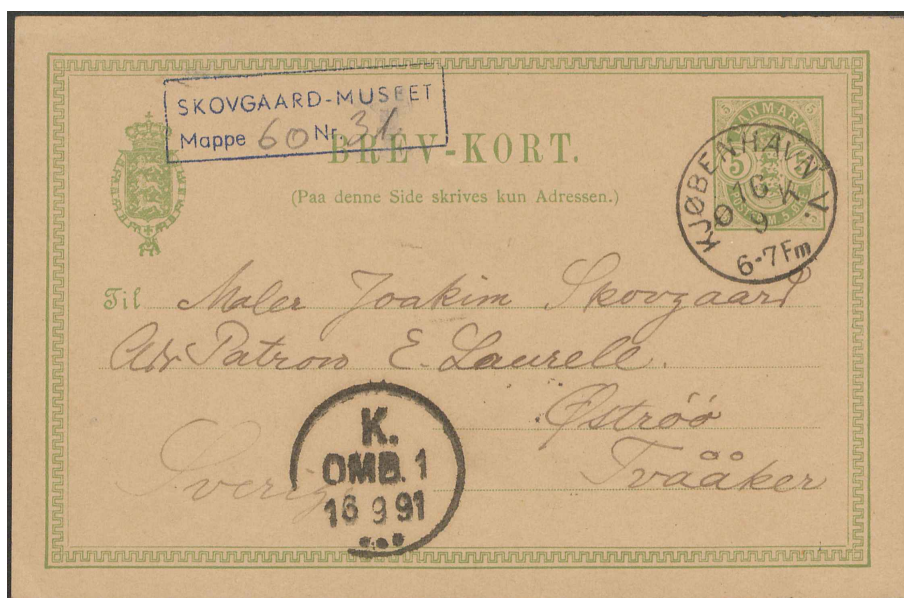 SKOVGAARD-MUSEET
Mappe 60 Nr. 31
BREV-KORT.
(Paa denne Side skrives kun Adressen.)
DANMARK
5 5
POSTFRIM. 5 ØRE
KJØBENHAVN V.
16 9
6-7 Fm
Til Maler Joakim Skovgaard
Adr Patron E. Laurell.
Öströö
Tvååker
Sverig
K.
OMB. 1
16 9 91